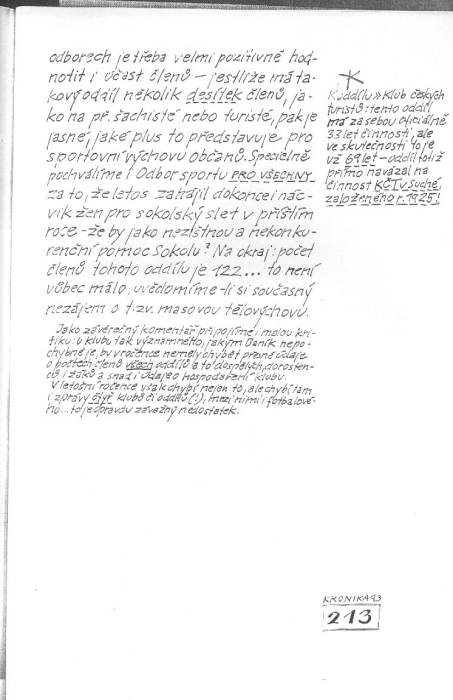 odborech je třeba velmi pozitivně hod-
notit i účast členů – jestliže má ta-
kový oddíl několik desítek členů, ja-
ko na př. šachisté nebo turisté, pak je
jasné, jaké plus to představuje pro
sportovní výchovu občanů. Speciálně
pochválíme i Odbor sportu PRO VŠECHNY
za to, že letos zahájil dokonce i nác-
vik žen pro sokolský slet v příštím
roce - že by jako nezištnou a nekonku-
renční pomoc Sokolu? Na okraj: počet
členů tohoto oddílu je 122... to není
vůbec málo, uvědomíme-li si současný
nezájem o t.zv. masovou tělovýchovu.
Jako závěrečný komentář připojíme i malou kri-
tiku: u klubu tak významného, jakým Baník nepo-
chybně je, by v ročence neměly chybět přesné údaje
o počtech členů všech oddílů a to dospělých, dorosten-
ců i žáků a snad i údaje o hospodaření klubu.
V letošní ročence však chybí nejen to, ale chybí tam
i zprávy čtyř klubů či oddílů (!), mezi nimi i fotbalové-
ho... to je opravdu závažný nedostatek.
K oddílu » Klub českých
turistů: tento oddíl
má za sebou oficiálně
33 let činnosti, ale
ve skutečnosti to je
už 69 let – oddíl totiž
přímo navázal na
činnost KČT v Suché,
založeného r. 1925!
KRONIKA 93
213